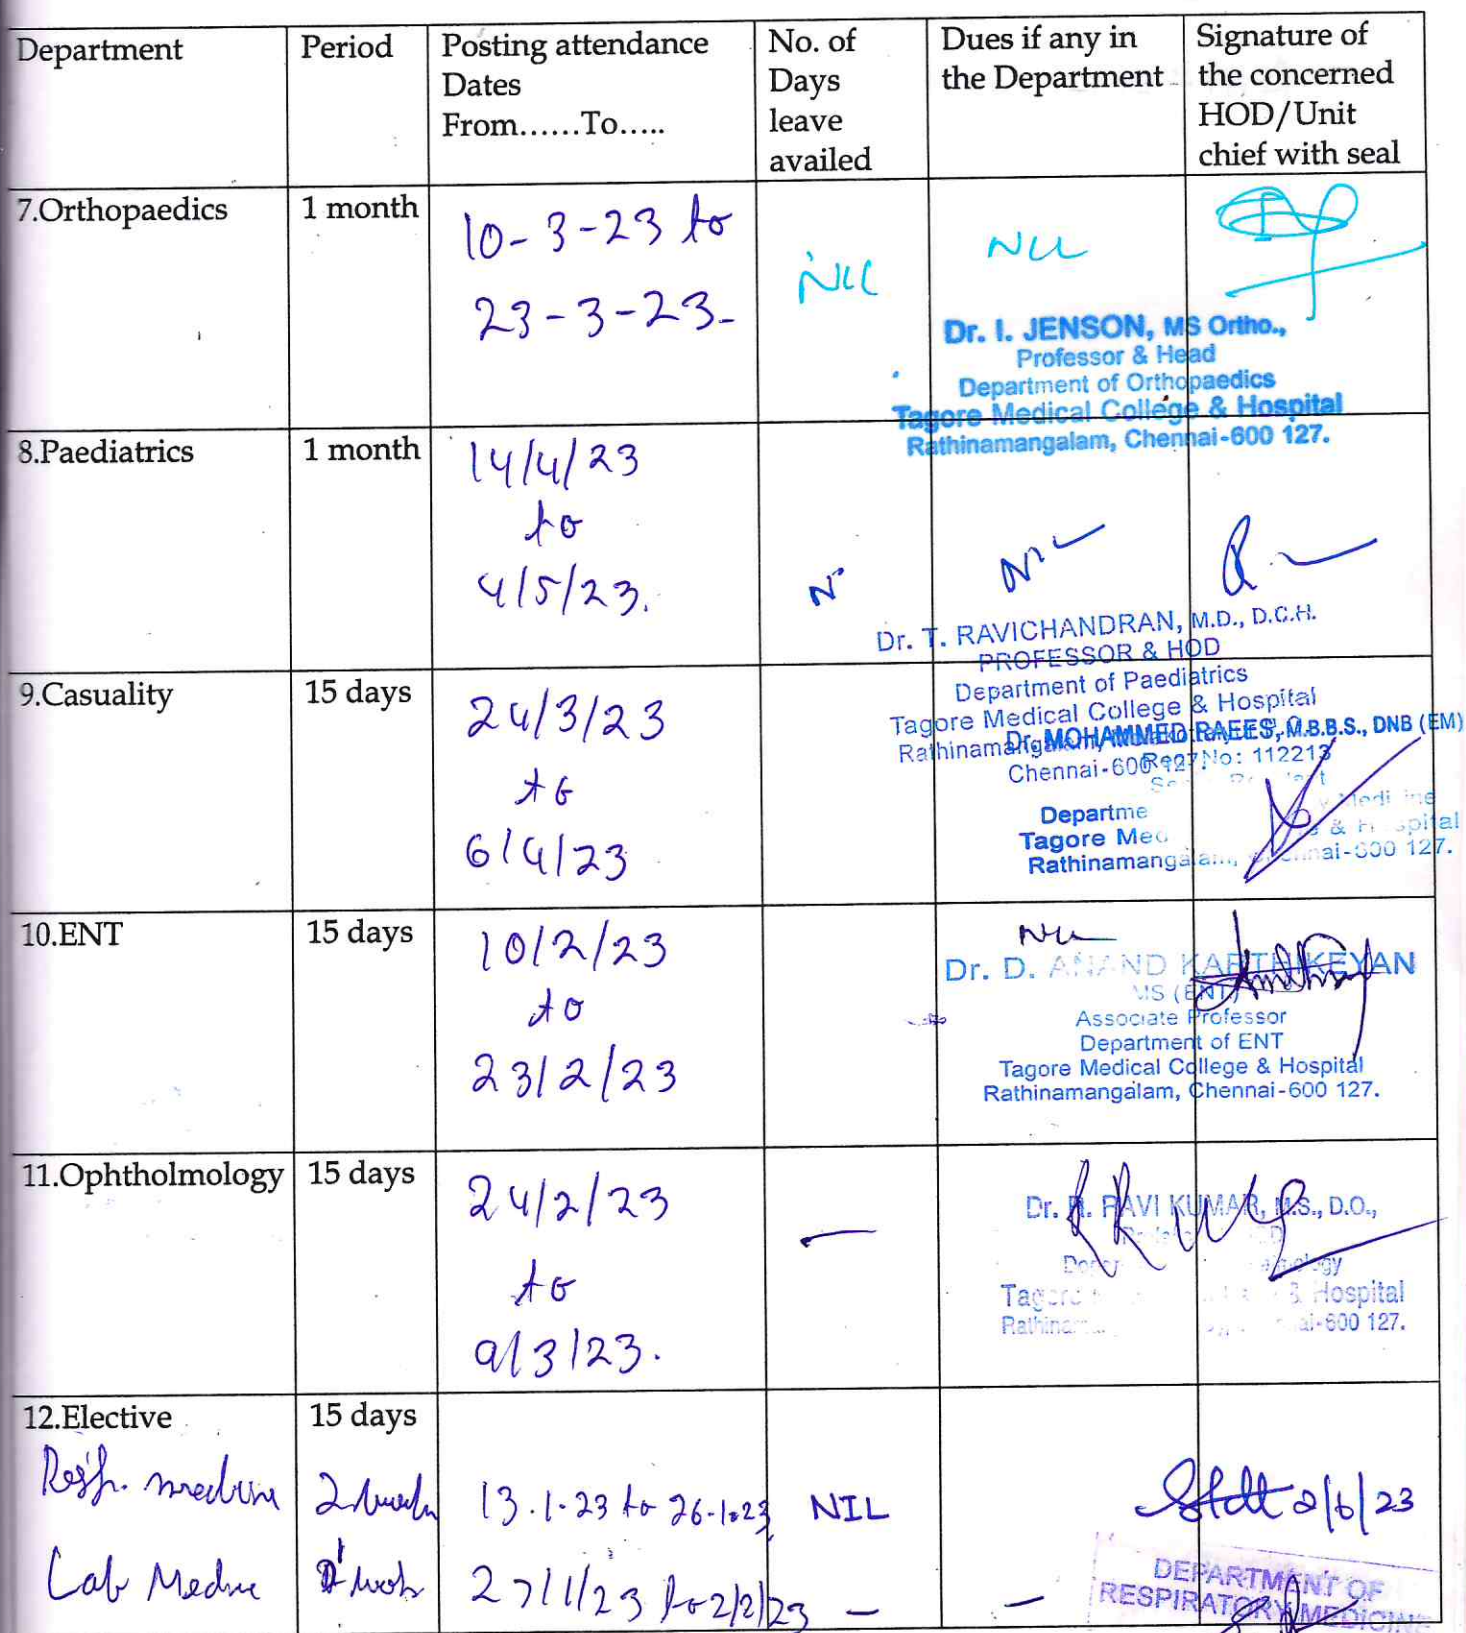 Department
Period
Posting attendance
Dates
From......To.....
No. of
Days
leave
availed
Dues if any in
the Department
Signature of
the concerned
HOD/Unit
chief with seal
7.Orthopaedics
1 month
10-3-23 to
23-3-23-
Nil
Nil
Dr. I. JENSON, MS Ortho.,
Professor & Head
Department of Orthopaedics
Tagore Medical College & Hospital
Rathinamangalam, Chennai-600 127.
8.Paediatrics
1 month
14/4/23
to
4/5/23.
Dr. T. RAVICHANDRAN, M.D., D.C.H.
PROFESSOR & HOD
Department of Paediatrics
Tagore Medical College & Hospital
Chennai-600 127.
9.Casuality
15 days
24/3/23
to
6/4/23
Dr. MOHAMMED RAFEES, M.B.B.S., DNB (EM)
Reg No: 112213
Rathinamangalam, Chennai-600 127.
10.ENT
15 days
10/2/23
to
23/2/23
Nil
Dr. D. ANAND KARTHIKEYAN
MS (ENT)
Associate Professor
Department of ENT
Tagore Medical College & Hospital
Rathinamangalam, Chennai-600 127.
11.Ophtholmology
15 days
24/2/23
to
9/3/23.
Dr. RAVI KUMAR, M.S., D.O.,
Hospital
600 127.
12.Elective
15 days
Resp. medicine
2 weeks
13.1.23 to 26.1.23
NIL
2/6/23
Lab Medicine
1 week
27/1/23 to 2/2/23
-
-
DEPARTMENT OF
RESPIRATORY MEDICINE